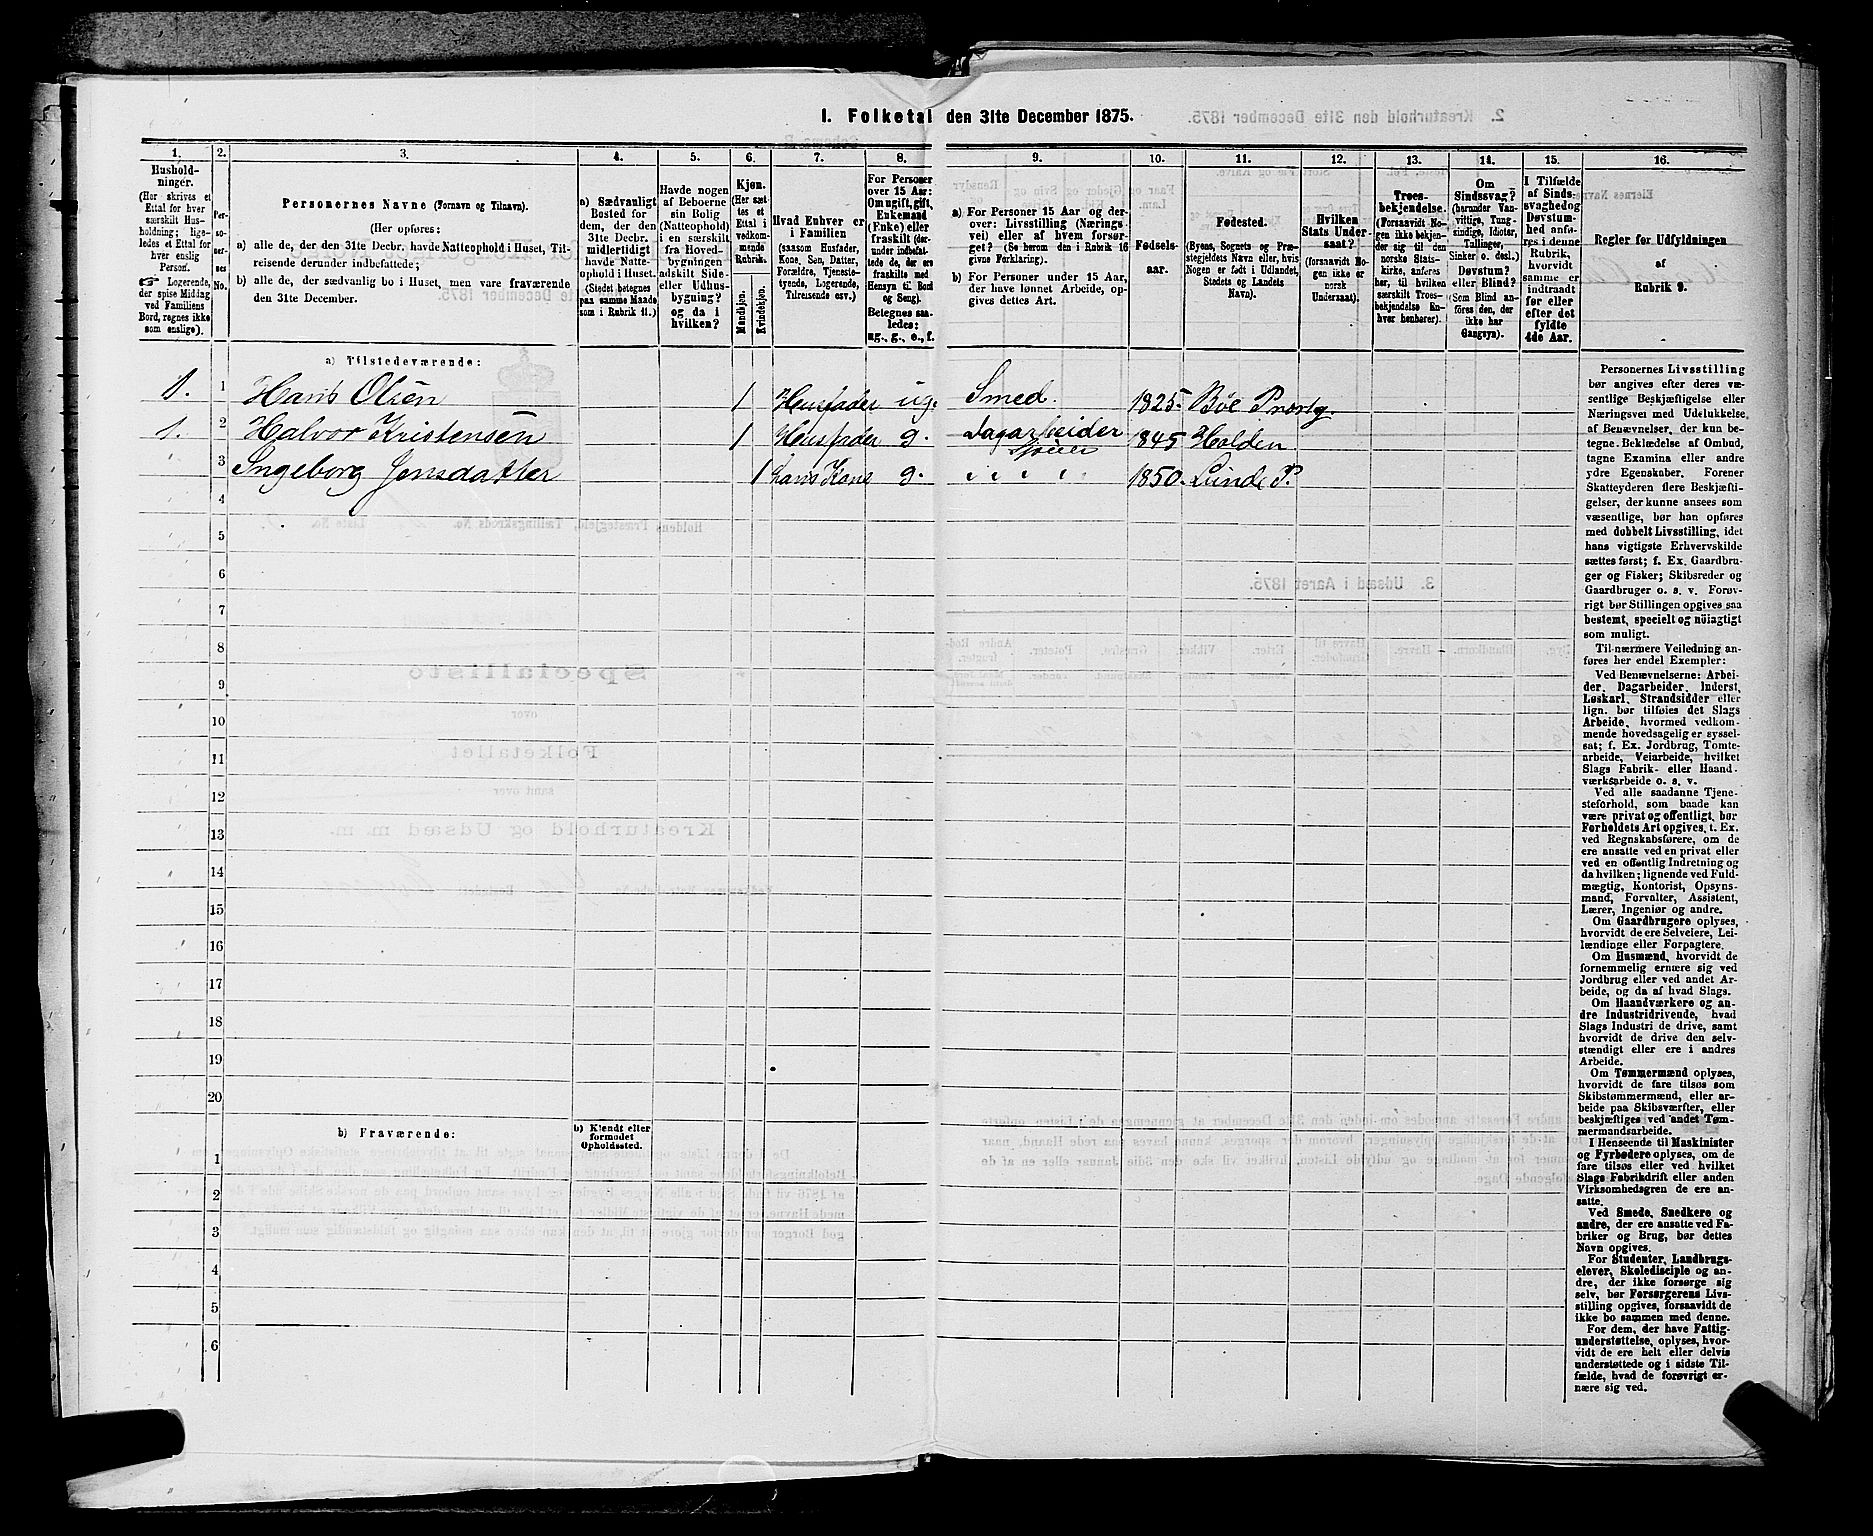 1. Folketal den 31te December 1875.
1. 2. 3. 4. 5. 6. 7. 8. 9. 10. 11. 12. 13. 14. 15. 16.
Hushold-
ninger.
(Her skrives et
Ettal for hver
særskilt Hus-
holdning; lige-
ledes et Ettal for
hver enslig
Person.
☞ Logerende,
der spise Middag
ved Familiens
Bord, regnes ikke
som enslige).
Per-
so-
ner-
nes
No.
Personernes Navne (Fornavn og Tilnavn).
(Her opføres:
a) alle de, der den 31te Decbr. havde Natteophold i Huset, Til-
reisende derunder indbefattede;
b) alle de, der sædvanlig bo i Huset, men vare fraværende
den 31te December.
a) Sædvanligt
Bosted for
dem, der den
31te Decbr.
midlertidigt
havde Natte-
ophold i Huset.
(Stedet betegnes
paa samme Maade
som i Rubrik 11.)
Havde nogen
af Beboerne
sin Bolig
(Natteophold)
i en særskilt
fra Hoved-
bygningen
adskilt Side-
eller Udhus-
bygning?
og da i
hvilken?
Kjøn.
(Her sæt-
tes et
Ettal i
vedkom-
mende
Rubrik.
Mandkjøn.
Kvindekjøn.
Hvad Enhver er
i Familien
(saasom Husfader,
Kone, Søn, Datter,
Forældre, Tjeneste-
tyende, Logerende,
Tilreisende osv.)
For Personer
over 15 Aar:
Om ugift, gift,
Enkemand
(Enke) eller
fraskilt (der-
under indbefat-
tede de, der ere
fraskilte med
Hensyn til Bord
og Seng).
Betegnes saa-
ledes:
ug., g., e., f.
a) For Personer 15 Aar og der-
over: Livsstilling (Nærings-
vei) eller af hvem forsør-
get? (Se herom den i Rubrik 16
givne Forklaring).
b) For Personer under 15 Aar,
der have lønnet Arbeide, op-
gives dettes Art.
Fødsels-
aar.
Fødested.
(Byens, Sognets og Præ-
stegjeldets Navn eller, hvis
Nogen er født i Udlandet,
Stedets og Landets
Navn).
Hvilken
Stats Under-
saat?
(forsaavidt No-
gen ikke er
norsk
Undersaat).
Troes-
bekjendelse.
(Forsaavidt No-
gen ikke bekjen-
der sig til den
norske Stats-
kirke, anføres
her, til hvilken
særskilt Troes-
bekjendelse En-
hver henhører).
Om
Sindssvag?
(herunder Van-
vittige, Tung-
sindige, Idioter,
Tullinger,
Sinker o. desl.)
Døvstum?
eller Blind?
(Som Blind an-
føres den, der
ikke har
Gangsyn).
I Tilfælde
af Sinds-
svaghed og
Døvstum-
hed anfø-
res i denne
Rubrik,
hvorvidt
samme er
indtraadt
før eller
efter det
fyldte
4de Aar.
Regler for Udfyldningen
af
Rubrik 9.
a) Tilstedeværende:
1. 1 Hans Olsen 1 Husfader ug. Smed. 1825. Bøe Præstg.
1. 2 Halvor Kristensen 1 Husfader g. Dagarbeider 1845 Holden
3 Ingeborg Jensdatter 1 hans Kone g. 1850. Lunde P.
4
5
6
7
8
9
10
11
12
13
14
15
16
17
18
19
20
b) Fraværende:
b) Kjendt eller
formodet
Opholdssted.
1
2
3
4
5
6
Personernes Livsstilling
bør angives efter deres væ-
sentlige Beskjæftigelse eller
Næringsvei med Udelukkelse
af Benævnelser, der kun be-
tegne Beklædelse af Ombud,
tagne Examina eller andre
ydre Egenskaber. Forener
Skatteyderen flere Beskjæfti-
gelser, der kunne ansees som
væsentlige, bør han opføres
med dobbelt Livsstilling, idet
hans vigtigste Erhvervskilde
sættes først; f. Ex. Gaardbru-
ger og Fisker; Skibsreder og
Gaardbruger o. s. v. Forøv-
rigt bør Stillingen opgives saa
bestemt, specielt og nöiagtigt
som muligt.
Til nærmere Veiledning an-
føres her endel Exempler:
Ved Benævnelserne: Arbei-
der, Dagarbeider, Inderst,
Løskarl, Strandsidder eller
lign. bør tilføies det Slags
Arbeide, hvormed vedkom-
mende hovedsagelig er syssel-
sat; f. Ex. Jordbrug, Tomte-
arbeide, Veiarbeide, hvilket
Slags Fabrik- eller Haand-
værksarbeide o. s. v.
Ved alle saadanne Tjene-
steforhold, som baade kan
være privat og offentligt, bør
Forholdets Art opgives, t. Ex.
ved Regnskabsførere, om de
ere ansatte ved en privat eller
ved en offentlig Indretning og
da hvilken; lignende ved Fuld-
mægtig, Kontorist, Opsyns-
mand, Forvalter, Assistent,
Lærer, Ingeniør og andre.
Om Gaardbrugere oplyses,
hvorvidt de ere Selveiere, Lei-
lændinge eller Forpagtere.
Om Husmænd, hvorvidt de
fornemmelig ernære sig ved
Jordbrug eller ved andet Ar-
beide, og da af hvad Slags.
Om Haandværkere og an-
dre Industridrivende, hvad
Slags Industri de drive, samt
hvorvidt de drive den selv-
stændigt eller ere i andres
Arbeide.
Om Tømmermænd oplyses,
hvorvidt de fare tilsøs som
Skibstømmermænd, eller ar-
beide paa Skibsværfter, eller
beskjæftiges ved andet Tøm-
mermandsarbeide.
I Henseende til Maskinister
og Fyrbødere oplyses, om de
fare tilsøs eller ved hvilket
Slags Fabrikdrift eller anden
Virksomhedsgren de ere an-
satte.
Ved Smede, Snedkere og
andre, der ere ansatte ved Fa-
briker og Brug, bør dettes
Navn opgives.
For Studenter, Landbrugs-
elever, Skoledisciple og an-
dre, der ikke forsørge sig
selv, bør Forsørgerens Livs-
stilling opgives, forsaavidt de
ikke bo sammen med denne.
For dem, der have Fattig-
understøttelse, oplyses, hvor-
vidt de ere helt eller delvis
understøttede og i sidste Til-
fælde, hvad de forøvrigt er-
nære sig ved.